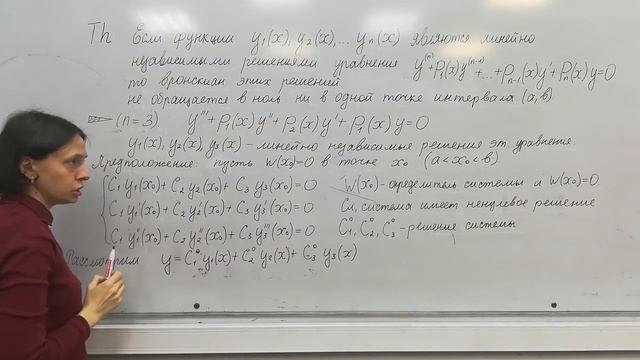 Th Если функции y₁(x), y₂(x), ... yₙ(x) являются линейно
независимыми решениями уравнения y⁽ⁿ⁾+p₁(x)y⁽ⁿ⁻¹⁾+...+pₙ₋₁(x)y'+pₙ(x)y=0
то вронскиан этих решений
не обращается в ноль ни в одной точке интервала (a,b)
(n=3) y'''+p₁(x)y''+p₂(x)y'+p₁(x)y=0
y₁(x), y₂(x), y₃(x) - линейно независимые решения эт. уравнения
Предположение: пусть W(x₀)=0 в точке x₀ (a<x₀<b)
C₁ y₁(x₀)+C₂ y₂(x₀)+C₃ y₃(x₀)=0
C₁ y₁'(x₀)+C₂ y₂'(x₀)+C₃ y₃'(x₀)=0
C₁ y₁''(x₀)+C₂ y₂''(x₀)+C₃ y₃''(x₀)=0
W(x₀)-определитель системы и W(x₀)=0.
система имеет ненулевое решение
C₁⁰, C₂⁰, C₃⁰ - решение системы
Рассмотрим y=C₁⁰ y₁(x)+C₂⁰ y₂(x)+C₃⁰ y₃(x)